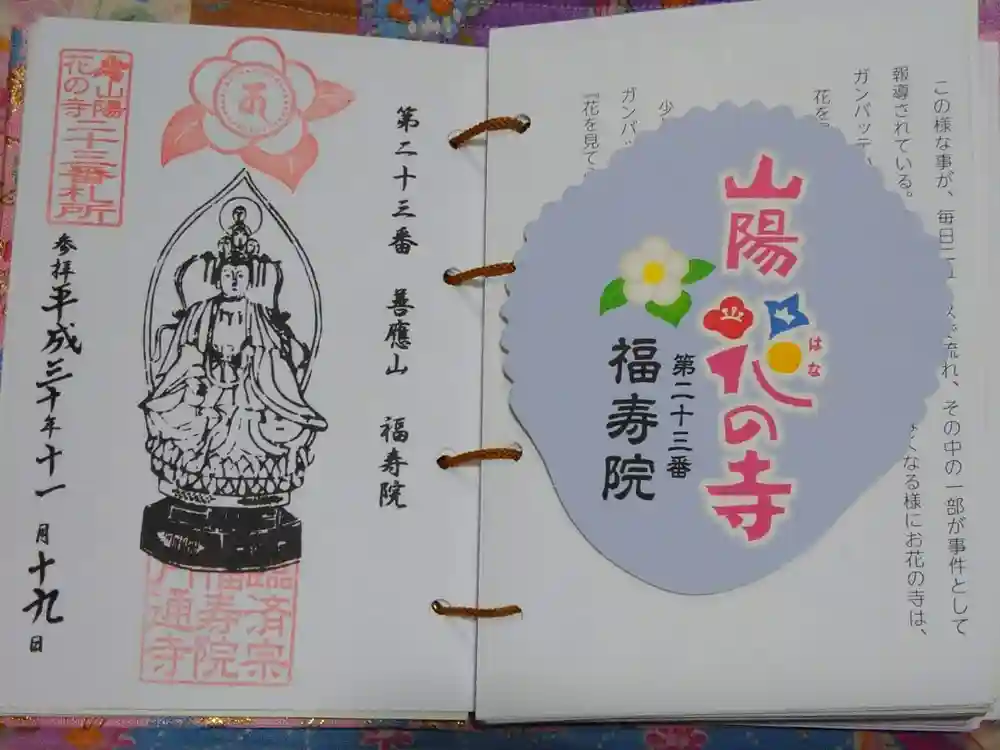 山陽
花の寺
二十三番札所
第二十三番 善應山 福寿院
参拝 平成三十年十一月十九日
臨済宗
福寿院
門通寺
この様な事が、毎日
流れ、その中の一部が事件として
報導されている。
ガンバッテ
なる様にお花の寺は、
花を
少
ガンバ
『花を見て
山陽
花の寺
はな
第二十三番
福寿院